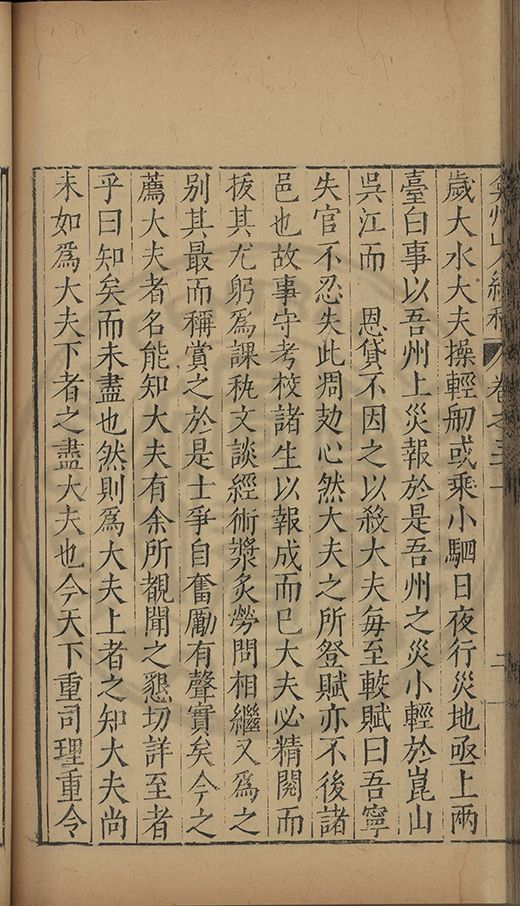 歲大水大夫操輕舠或乘小駟日夜行災地亟上兩
臺白事以吾州上災報於是吾州之災小輕於崑山
吳江而　恩貸不因之以殺大夫每至較賦曰吾寧
失官不忍失此凋劾心然大夫之所登賦亦不後諸
邑也故事守考校諸生以報成而已大夫必精閱而
拔其尤躬為課秇文談經術漿炙勞問相繼又為之
別其最而稱賞之於是士爭自奮勵有聲實矣今之
薦大夫者名能知大夫有余所覩聞之懇切詳至者
乎曰知矣而未盡也然則為大夫上者之知大夫尚
未如為大夫下者之盡大夫也今天下重司理重令